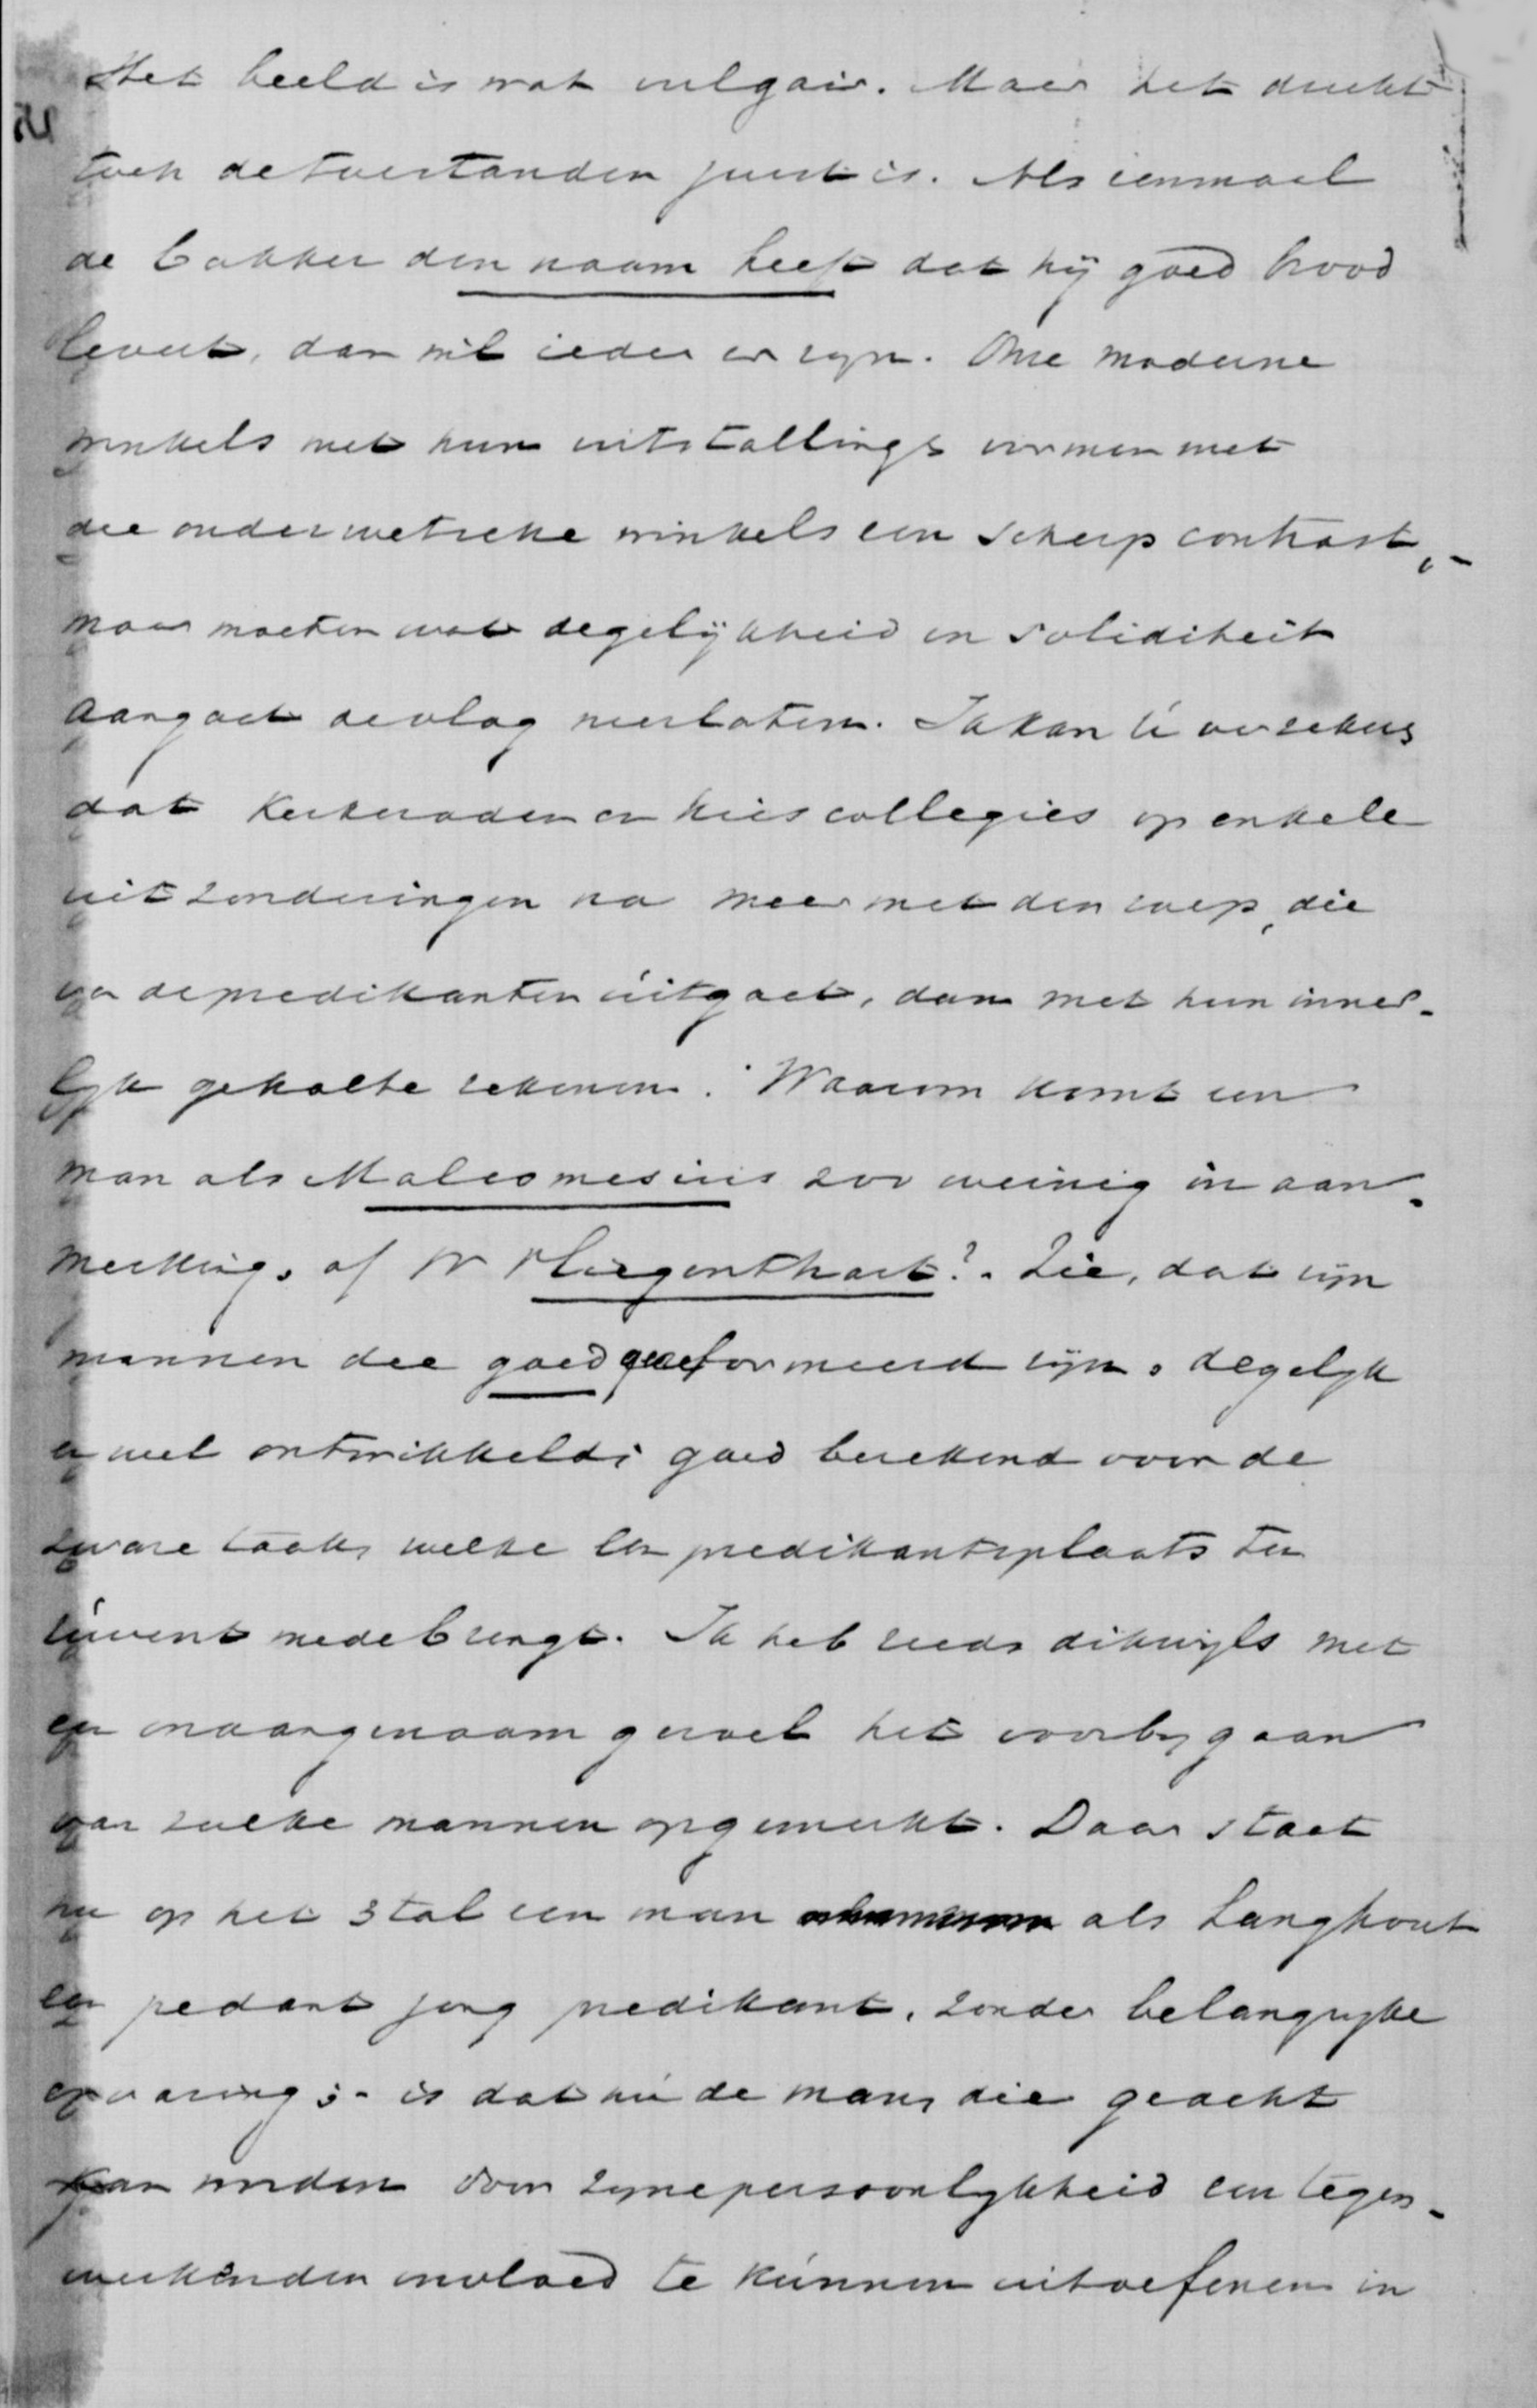 Het beeld is wat vulgair. Maar het drukt
toch de toestanden juist is. Als eenmaal
de bakker den naam heeft dat hij goed brood
levert, dan wil ieder er zijn. Onze moderne
winkels met hun uitstallings vormen met
die onderwetsche winkels een scherp contrast,-
maar moeten wat degelijkheid en soliditeit
aangaat de vlag neerlaten. Ik kan U verzekeren
dat kerkeraden en kiescollegies op enkele
uitzonderingen na meer met den roep, die
van de predikanten uitgaat, dan met hun inner-
lijk gehalte rekenen. Waarom komt een
man als Malcomesius zoo weinig in aan-
merking, of W Vliegenthart? Zie, dat zijn
mannen die goed gereformeerd zijn, degelijk
en wel ontwikkeld; goed berekend voor de
zware taak, welke een predikantsplaats ten
uwent medebrengt. Ik heb reeds dikwijls met
een onaangenaam gevoel het voorbijgaan
van zulke mannen opgemerkt. Daar staat
nu op het 3 tal een man als Langhout
een pedant jong predikant, zonder belangrijke
ervaring;- is dat nu de man, die geacht
kan worden door zijne persoonlijkheid een tegen-
werkenden invloed te kunnen uitoefenen in